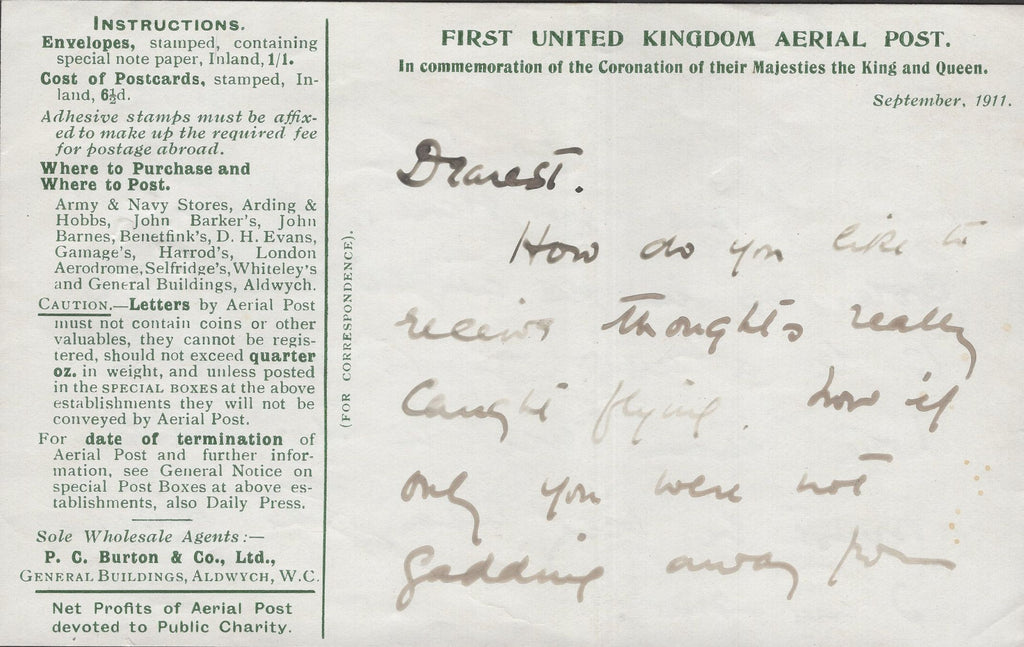 INSTRUCTIONS.
Envelopes, stamped, containing
special note paper, Inland, 1/1.
Cost of Postcards, stamped, In-
land, 6½d.
Adhesive stamps must be affix-
ed to make up the required fee
for postage abroad.
Where to Purchase and
Where to Post.
Army & Navy Stores, Arding &
Hobbs, John Barker's, John
Barnes, Benetfink's, D. H. Evans,
Gamage's, Harrod's, London
Aerodrome, Selfridge's, Whiteley's
and General Buildings, Aldwych.
CAUTION.—Letters by Aerial Post
must not contain coins or other
valuables, they cannot be regis-
tered, should not exceed quarter
oz. in weight, and unless posted
in the SPECIAL BOXES at the above
establishments they will not be
conveyed by Aerial Post.
For date of termination of
Aerial Post and further infor-
mation, see General Notice on
special Post Boxes at above es-
tablishments, also Daily Press.
Sole Wholesale Agents:—
P. C. Burton & Co., Ltd.,
GENERAL BUILDINGS, ALDWYCH, W.C.
Net Profits of Aerial Post
devoted to Public Charity.
(FOR CORRESPONDENCE).
FIRST UNITED KINGDOM AERIAL POST.
In commemoration of the Coronation of their Majesties the King and Queen.
September, 1911.
Dearest.
How do you like to
receive thoughts really
Caught flying. now if
only you were not
gadding away from